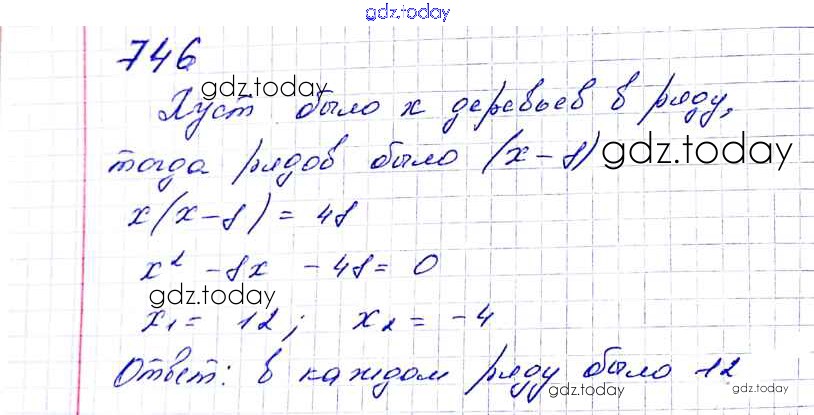 gdz.today
746
gdz.today
Пуст было x деревьев в ряду,
тогда рядов было (x-8) gdz.today
x(x-8) = 48
x² - 8x - 48 = 0
gdz.today
x₁ = 12; x₂ = -4
Ответ: в каждом ряду было 12
gdz.today gdz.today